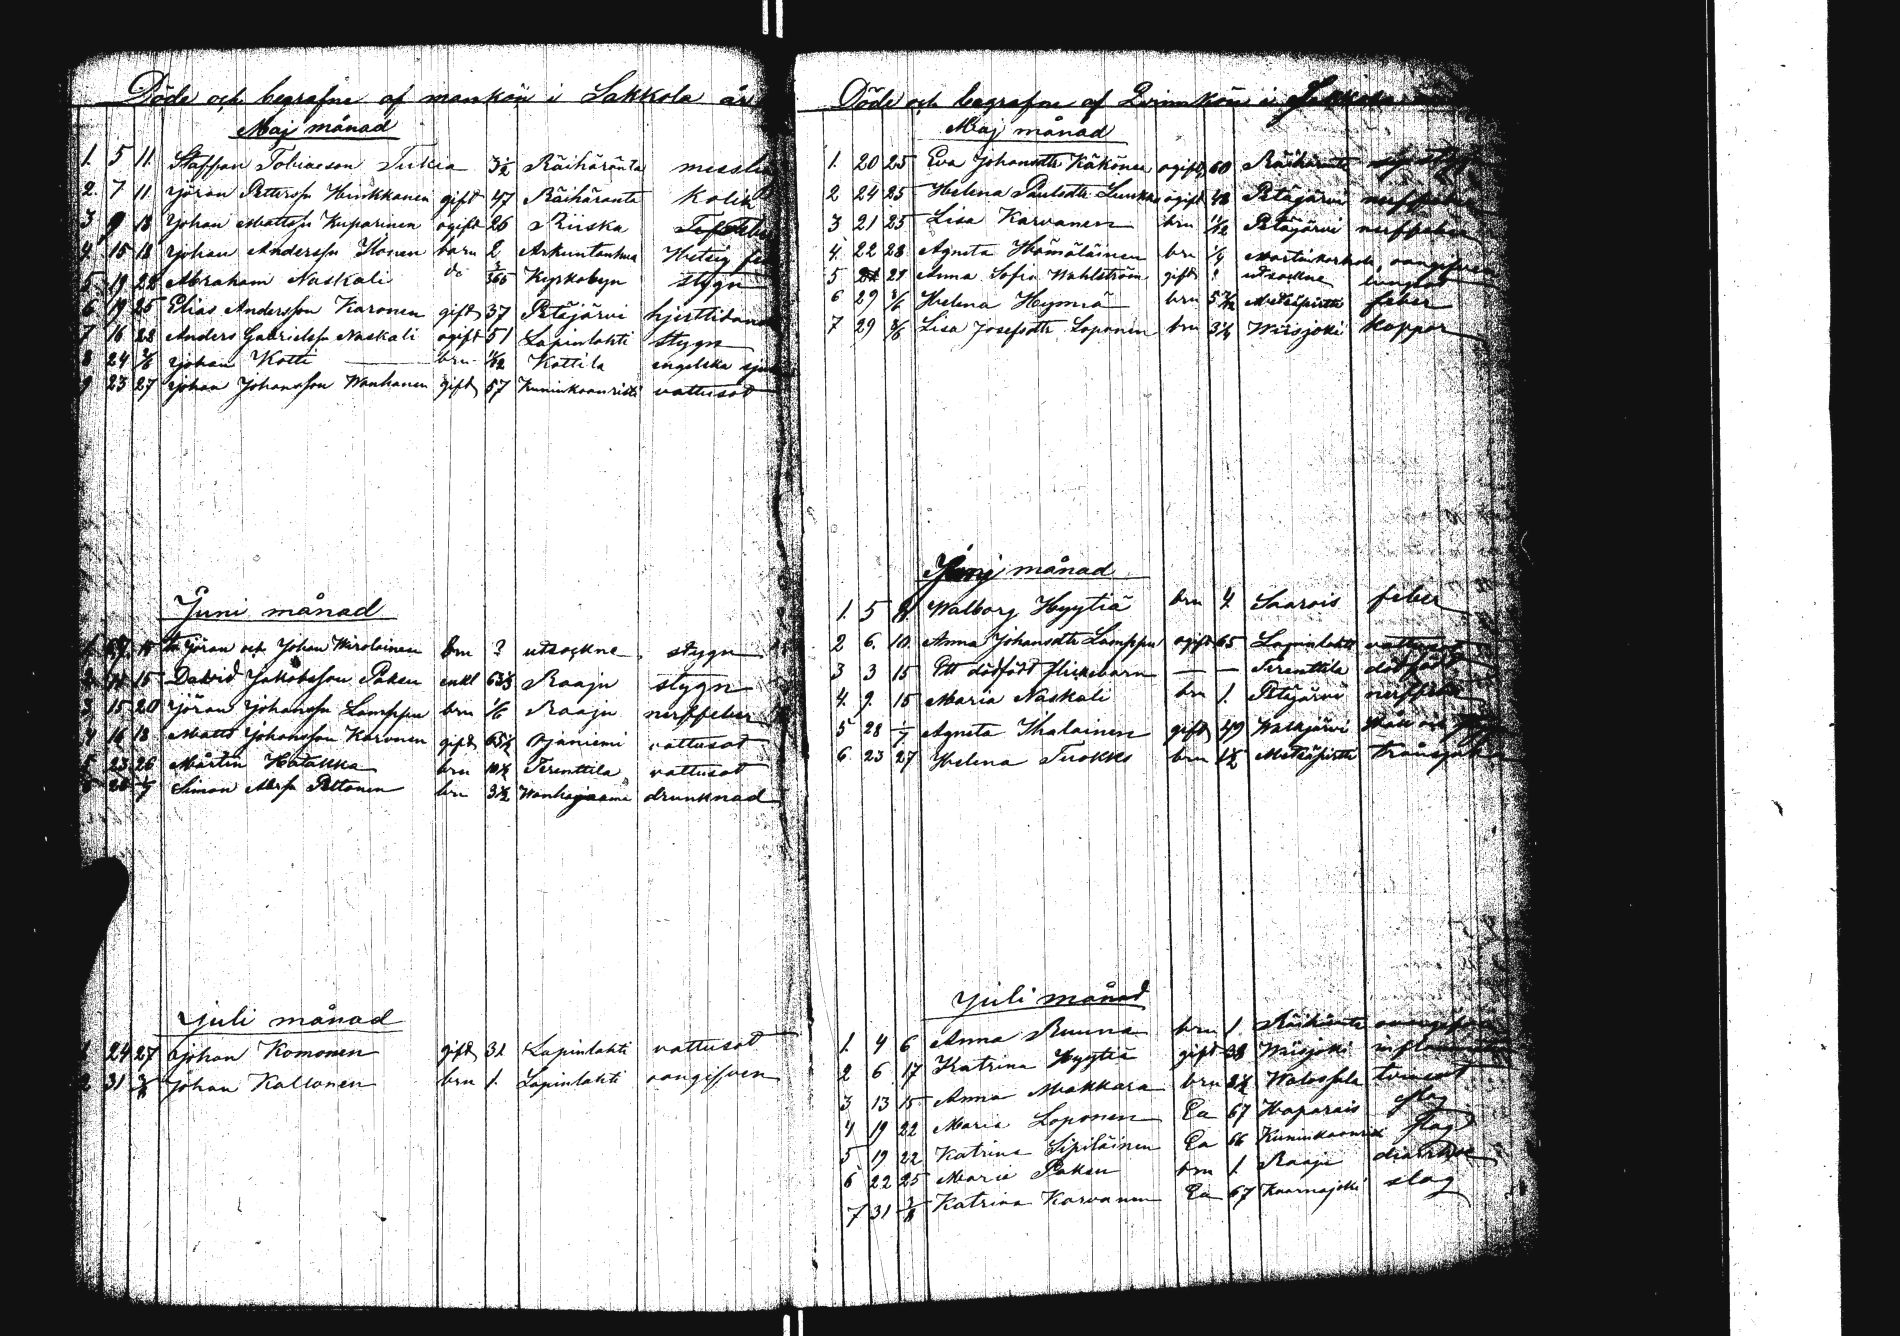 Döde och begrafne af mankön i Sakkola år
Maj månad
1. 5 11 Staffan Tobiasson Tukia 3½ Räihäranta messlin
2. 7 11 Jöran Petterss Hinkkanen gift 47 Räihäranta Kolik
3 9 18 Johan Mattss Kuparinen ogift 26 Riiska
4. 15 18 Johan Anderss Ikonen barn 2 Arkuntanhua Hetsig feb
5 19 22 Abraham Naskali do 3/365 Kyrkobyn stygn
6 19 25 Elias Andersson Karonen gift 37 Petäjärvi hjerttidand
7 16 22 Anders Gabrielss Naskali ogift 51 Lapinlahti stygn
8 24 Johan Kotti brn Kottila engelska sju
9 23 27 Johan Johansson Wanhanen gift 57 Kuninkaanristi vattusot
Juni månad
Jöran och Johan Wirolainen brn ? utsockne stygn
15 David Jakobsson Paksu enkl 63 Raaju stygn
3 15 20 Jöran Johanss Lamppu brn 1/6 Raaju nerffeber
4 16 18 Matts Johansson Karvonen gift 65½ Ojaniemi vattusot
5 23 26 Mårtin Hatakka brn Terenttila vattusot
6 28 1/7 Simon Mrss Peltonen brn 3½ Wanhajaama drunknad
Juli månad
1 24 27 Johan Komonen gift 31 Lapinlahti vattusot
2 31 Johan Kallonen brn 1. Lapinlahti oangifven
Döde och begrafne af Qvinnkön i Sakkola
Maj månad
1. 20 25 Eva Johansdtr Käkönen ogift 60 Räihäranta
2 24 25 Helena Paulsdtr ogift 48 Petäjärvi nerffeber
3 21 25 Lisa Karvanen brn 11/12 Petäjärvi nerffeber
4. 22 28 Agneta Hämäläinen brn 1/4 oangifven
5 29 Anna Sofia Wahlström gift ? utsockne lungsot
6 29 Helena Hyvniä brn Metsäpirtti feber
7 29 Lisa Josefsdtr Loponen brn 3¼ Wiisjoki koppor
Junj månad
1. 5 8 Walborg Hyytiä brn 4. Saarois feber
2 6. 10 Anna Johansdtr Lamppu ogift 65 Lapinlahti vattusot
3 3 15 Ett dödfödt flickebarn — — Terenttila dödfödt
4. 9. 15 Maria Naskali brn 1. Petäjärvi nerffeber
5 28 1/7 Agneta Ihalainen gift 49 Walkjärvi
6 23 27 Helena Tuokko brn Metsäpirtti
Juli månad
1. 4 6 Anna Ruuna brn 1. Räihäranta oangifven
2 6 17 Katrina Hyytiä gift 38 Wiisjoki
3 13 15 Anna Makkara brn
4 19 22 Maria Loponen Ea 67 Haparais slag
5 19 22 Katrina Sipiläinen Ea 66 Kuninkaanristi slag
6 22 25 Maria Paksu brn 1. Raaju diarrhoe
7 31 3/8 Katrina Karvanen Ea 67 Kaarnajoki slag